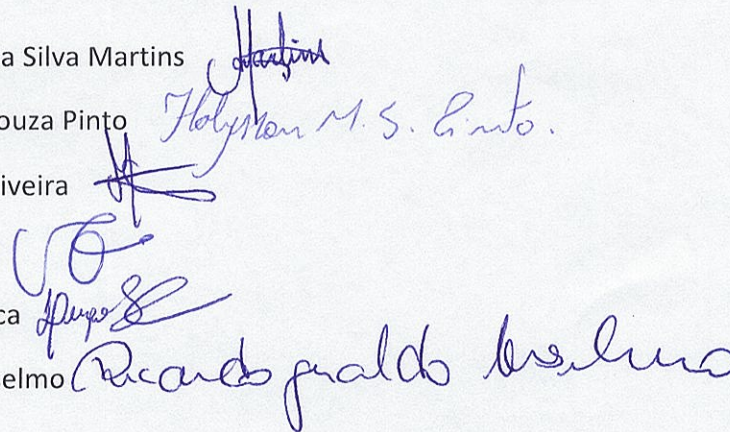 a Silva Martins Martins
ouza Pinto M. S. Pinto.
iveira
ca
elmo Ricardo Geraldo Anselmo